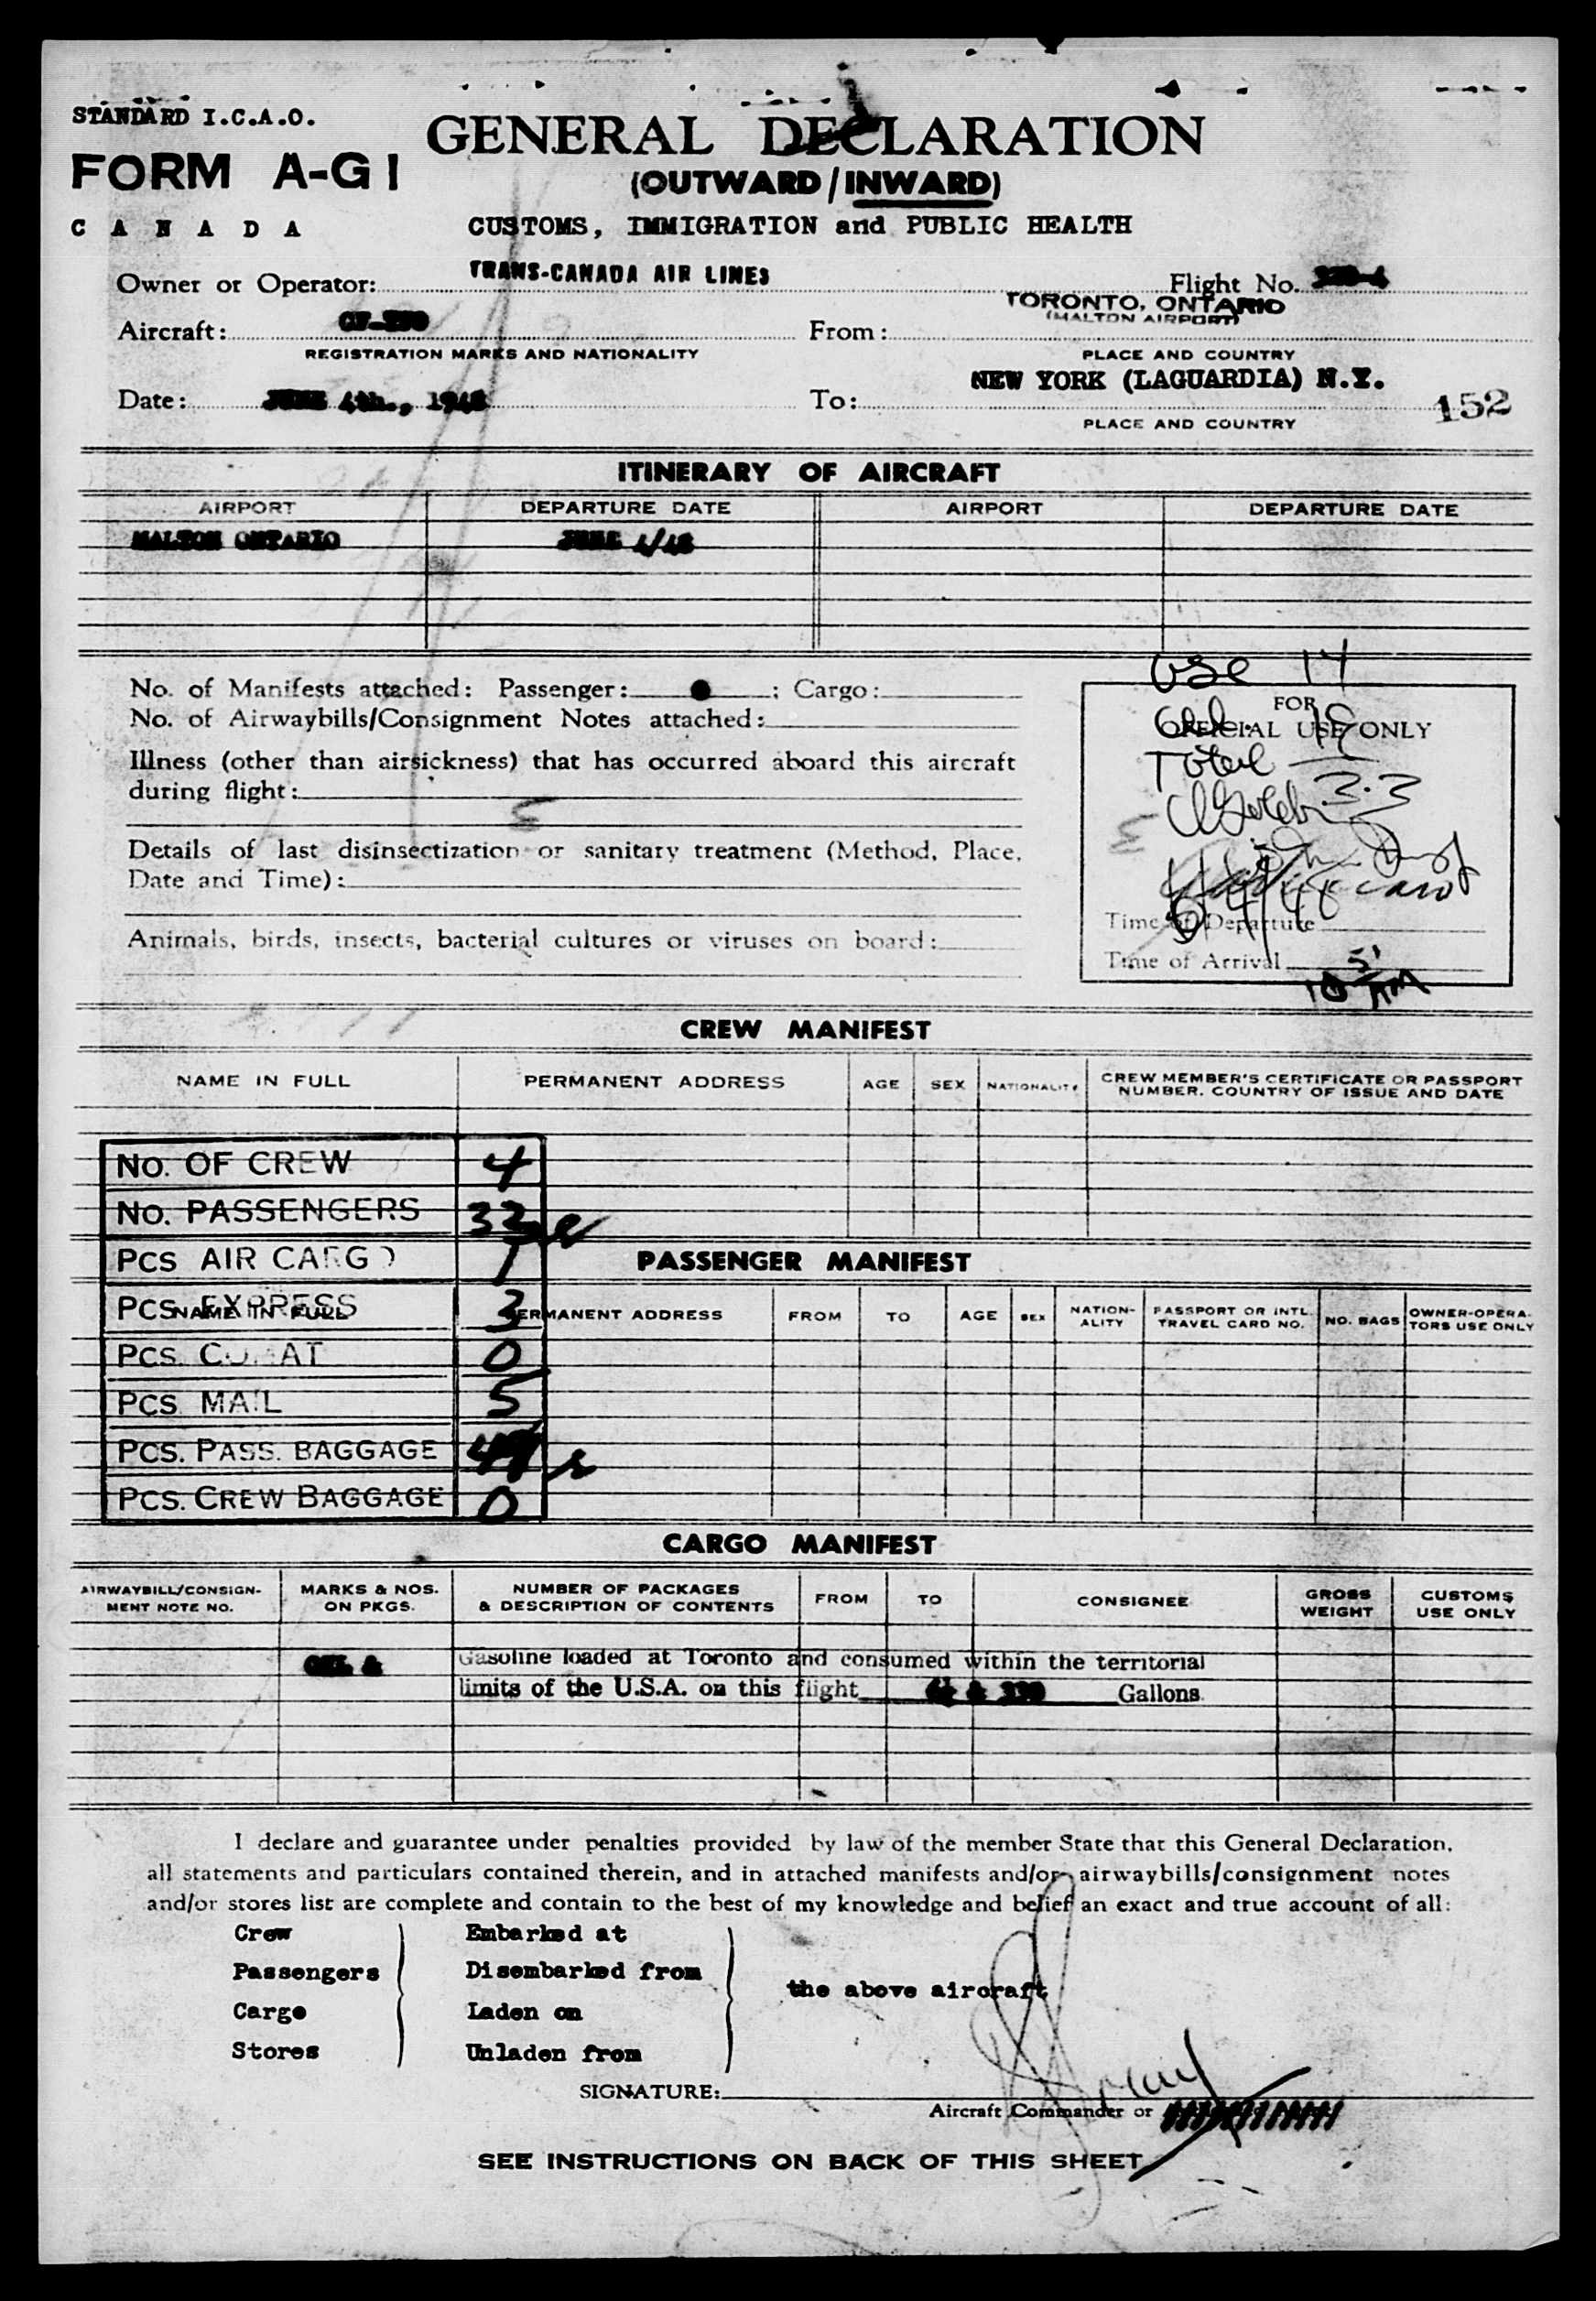 STANDARD I.C.A.O.
FORM A-G1
CANADA
GENERAL DECLARATION
(OUTWARD/INWARD)
CUSTOMS, IMMIGRATION and PUBLIC HEALTH
Owner or Operator: TRANS-CANADA AIR LINES Flight No.
TORONTO, ONTARIO
(MALTON AIRPORT)
Aircraft: From:
REGISTRATION MARKS AND NATIONALITY PLACE AND COUNTRY
NEW YORK (LAGUARDIA) N.Y.
Date: JUNE 4th., 1948 To: 152
PLACE AND COUNTRY
ITINERARY OF AIRCRAFT
AIRPORT DEPARTURE DATE AIRPORT DEPARTURE DATE
MALTON ONTARIO JUNE 4/48
USC 14
No. of Manifests attached: Passenger: ; Cargo:
No. of Airwaybills/Consignment Notes attached:
Illness (other than airsickness) that has occurred aboard this aircraft
during flight:
Details of last disinsectization or sanitary treatment (Method, Place,
Date and Time):
Animals, birds, insects, bacterial cultures or viruses on board:
FOR
OFFICIAL USE ONLY
19
Total 33
6/4/48
Time of Departure
Time of Arrival
CREW MANIFEST
NAME IN FULL PERMANENT ADDRESS AGE SEX NATIONALITY CREW MEMBER'S CERTIFICATE OR PASSPORT
NUMBER, COUNTRY OF ISSUE AND DATE
NO. OF CREW 4
NO. PASSENGERS 33
PCS AIR CARGO 1
PASSENGER MANIFEST
PCS. EXPRESS 3
NAME IN FULL PERMANENT ADDRESS FROM TO AGE SEX NATION-
ALITY PASSPORT OR INTL.
TRAVEL CARD NO. NO. BAGS OWNER-OPERA-
TORS USE ONLY
PCS. COMAT 0
PCS. MAIL 5
PCS. PASS. BAGGAGE
PCS. CREW BAGGAGE 0
CARGO MANIFEST
AIRWAYBILL/CONSIGN-
MENT NOTE NO. MARKS & NOS.
ON PKGS. NUMBER OF PACKAGES
& DESCRIPTION OF CONTENTS FROM TO CONSIGNEE GROSS
WEIGHT CUSTOMS
USE ONLY
OIL & Gasoline loaded at Toronto and consumed within the territorial
limits of the U.S.A. on this flight Gallons.
I declare and guarantee under penalties provided by law of the member State that this General Declaration,
all statements and particulars contained therein, and in attached manifests and/or airwaybills/consignment notes
and/or stores list are complete and contain to the best of my knowledge and belief an exact and true account of all:
Crew Embarked at
Passengers Disembarked from
the above aircraft
Cargo Laden on
Stores Unladen from
SIGNATURE:
Aircraft Commander or
SEE INSTRUCTIONS ON BACK OF THIS SHEET